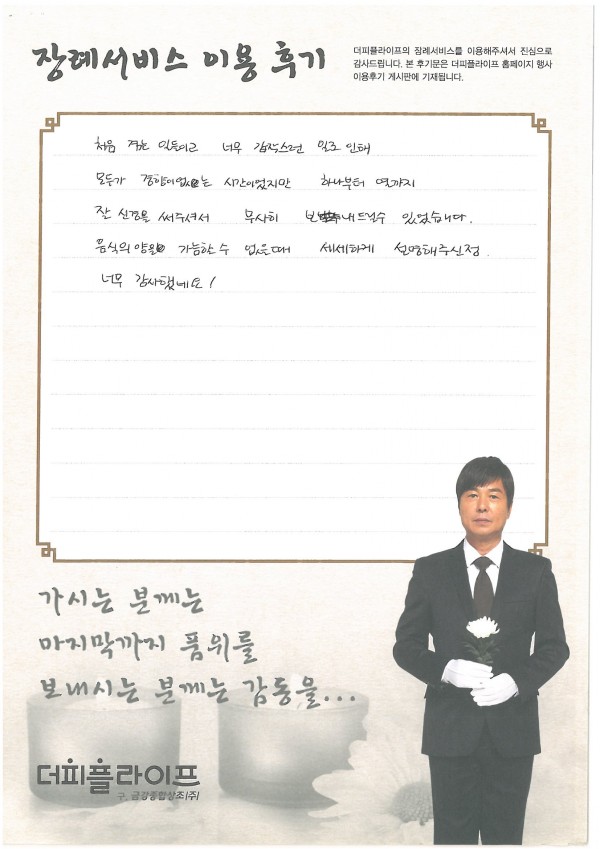 장례서비스 이용 후기
더피플라이프의 장례서비스를 이용해주셔서 진심으로
감사드립니다. 본 후기문은 더피플라이프 홈페이지 행사
이용후기 게시판에 기재됩니다.
처음 겪는 일들이고 너무 갑작스런 일로 인해
모두가 경황이없는 시간이었지만 하나부터 열까지
잘 신경을 써주셔서 무사히 보내드릴수 있었습니다.
음식의양을 가늠할수 없을때 세세하게 설명해주신점
너무 감사했네요!
가시는 분께는
마지막까지 품위를
보내시는 분께는 감동을...
더피플라이프
구. 금강종합상조(주)